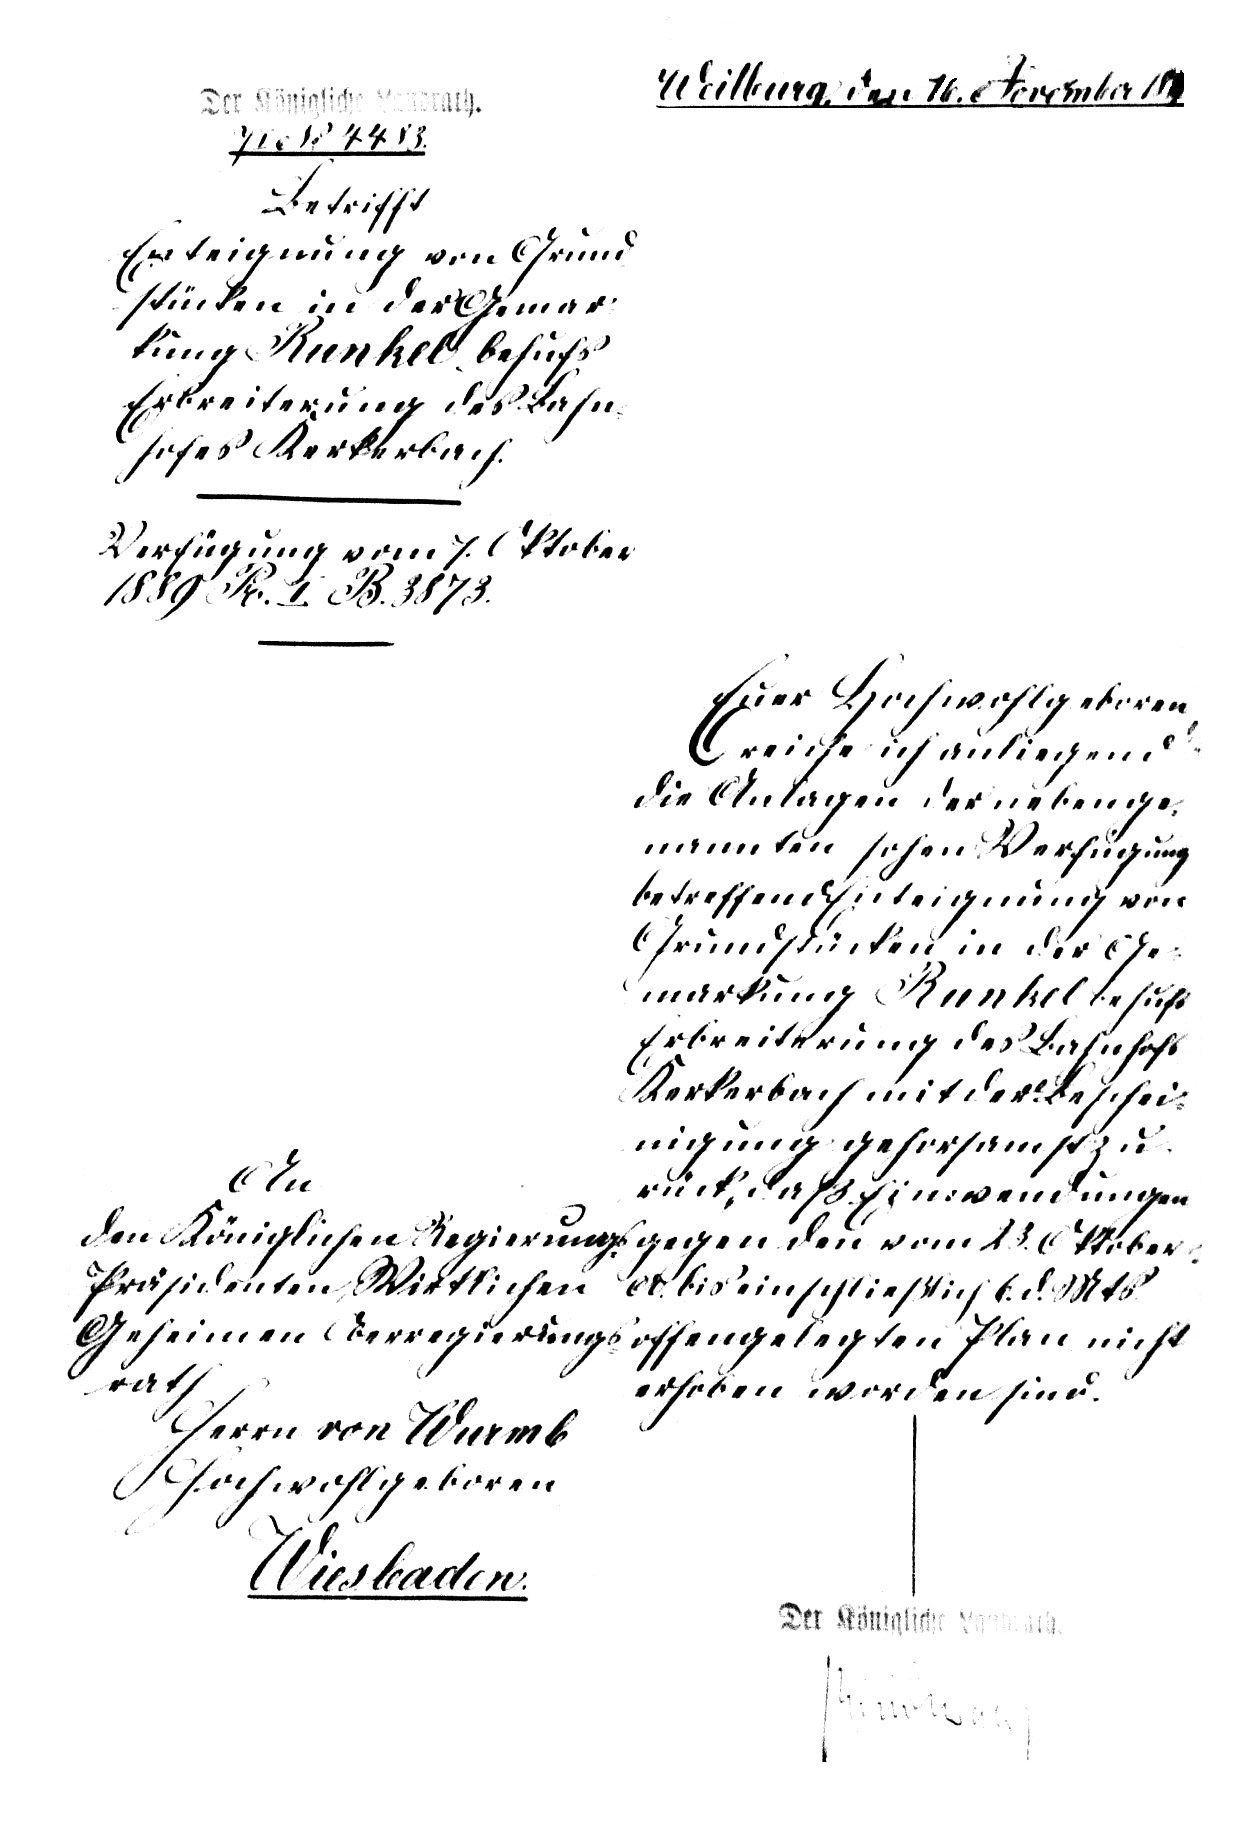 Weilburg, den 16. November 18
Der Königliche Landrath.
4483.
Betrifft
Enteignung von Grund
stücken in der Gemar-
kung Runkel behufs
Erbreiterung des Bahn-
hofes Kerkerbach.
Verfügung vom 7. Oktober
1889 Pr. I B. 3873.
Euer Hochwohlgeboren
reiche ich anliegend
die Anlagen der nebenge-
nannten hohen Verfügung
betreffend Enteignung von
Grundstücken in der Ge-
markung Runkel behufs
Erbreiterung des Bahnhofs
Kerkerbach mit der Beschei-
nigung gehorsamst zu
rück, daß Einwendungen
gegen den vom 23. Oktober
bis einschließlich 6. d. Mts
offengelegten Plan nicht
erhoben worden sind.
An
den Königlichen Regierungs-
Präsidenten, Wirklichen
Geheimen Oberregierungs-
rath
Herrn von Wurmb
Hochwohlgeboren
Wiesbaden.
Der Königliche Landrath.